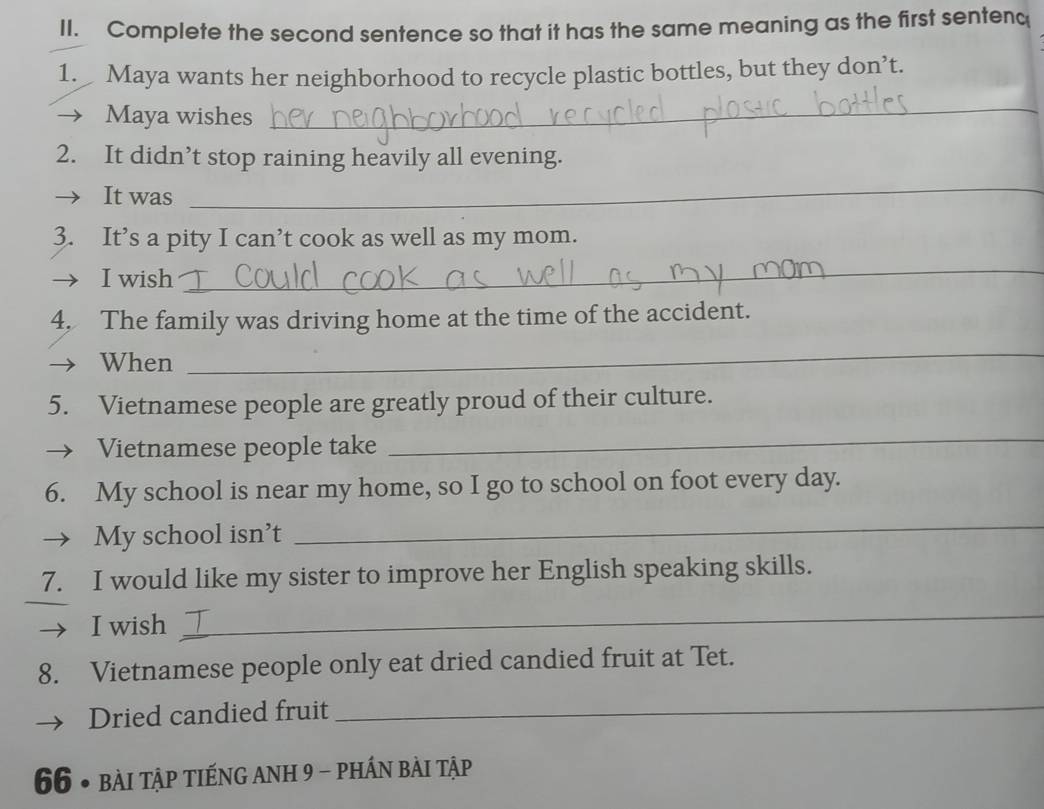 II. Complete the second sentence so that it has the same meaning as the first sentenc
1. Maya wants her neighborhood to recycle plastic bottles, but they don't.
→ Maya wishes her neighborhood recycled plastic bottles
2. It didn't stop raining heavily all evening.
→ It was
3. It's a pity I can't cook as well as my mom.
→ I wish I could cook as well as my mom
4. The family was driving home at the time of the accident.
→ When
5. Vietnamese people are greatly proud of their culture.
→ Vietnamese people take
6. My school is near my home, so I go to school on foot every day.
→ My school isn't
7. I would like my sister to improve her English speaking skills.
→ I wish I
8. Vietnamese people only eat dried candied fruit at Tet.
→ Dried candied fruit
66 • BÀI TẬP TIẾNG ANH 9 – PHẦN BÀI TẬP